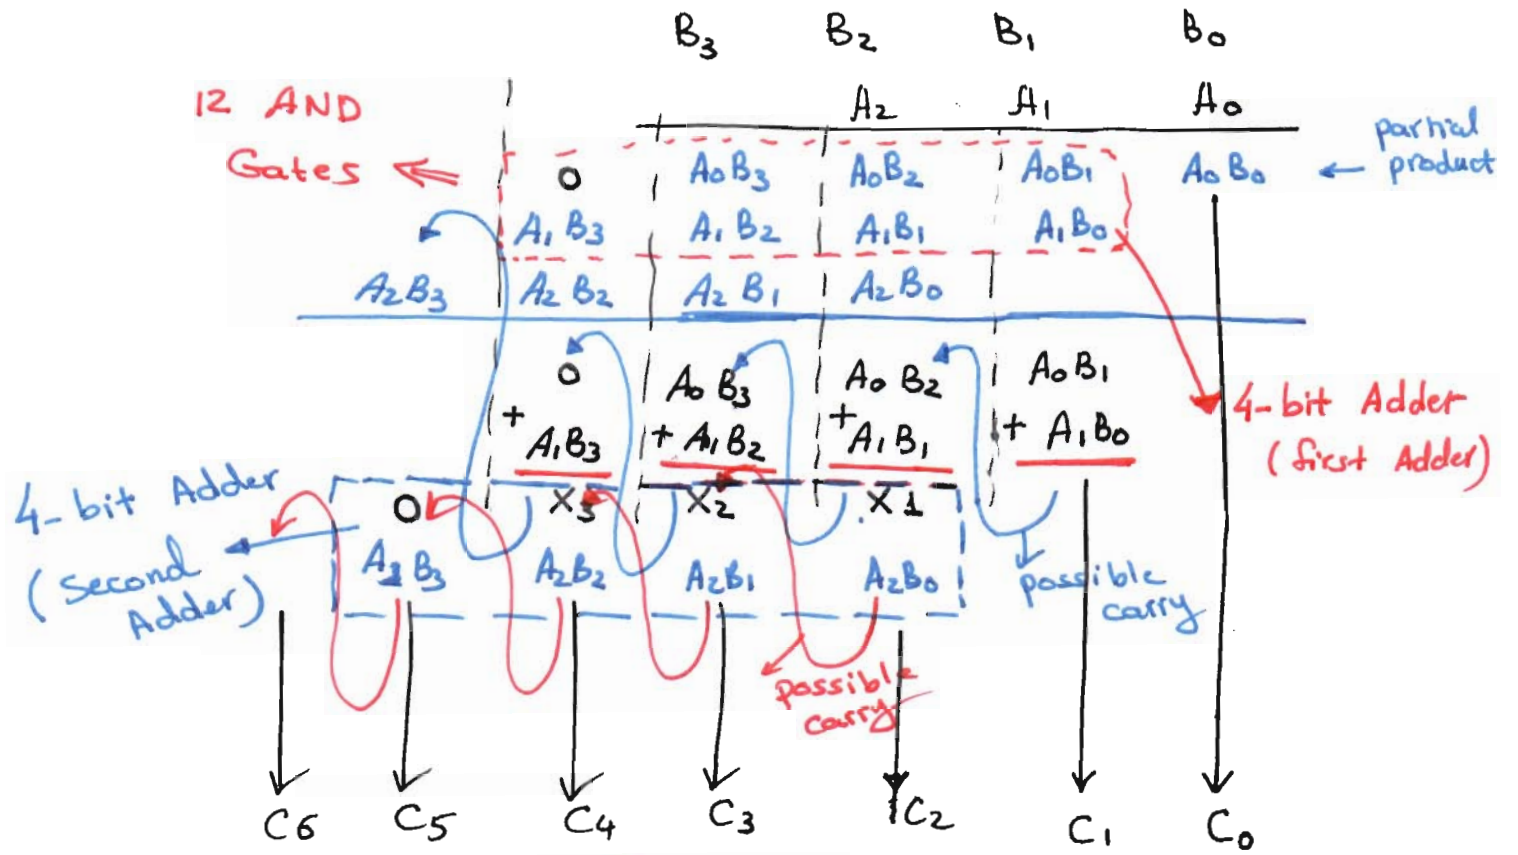 B3 B2 B1 B0
12 AND A2 A1 A0
Gates 0 A0B3 A0B2 A0B1 A0B0 partial product
A1B3 A1B2 A1B1 A1B0
A2B3 A2B2 A2B1 A2B0
0 A0B3 A0B2 A0B1
+ A1B3 + A1B2 + A1B1 + A1B0
4-bit Adder
(first Adder)
4-bit Adder 0 X3 X2 X1
(Second Adder) B3 A2B2 A2B1 A2B0
possible
carry
possible
carry
C6 C5 C4 C3 C2 C1 C0